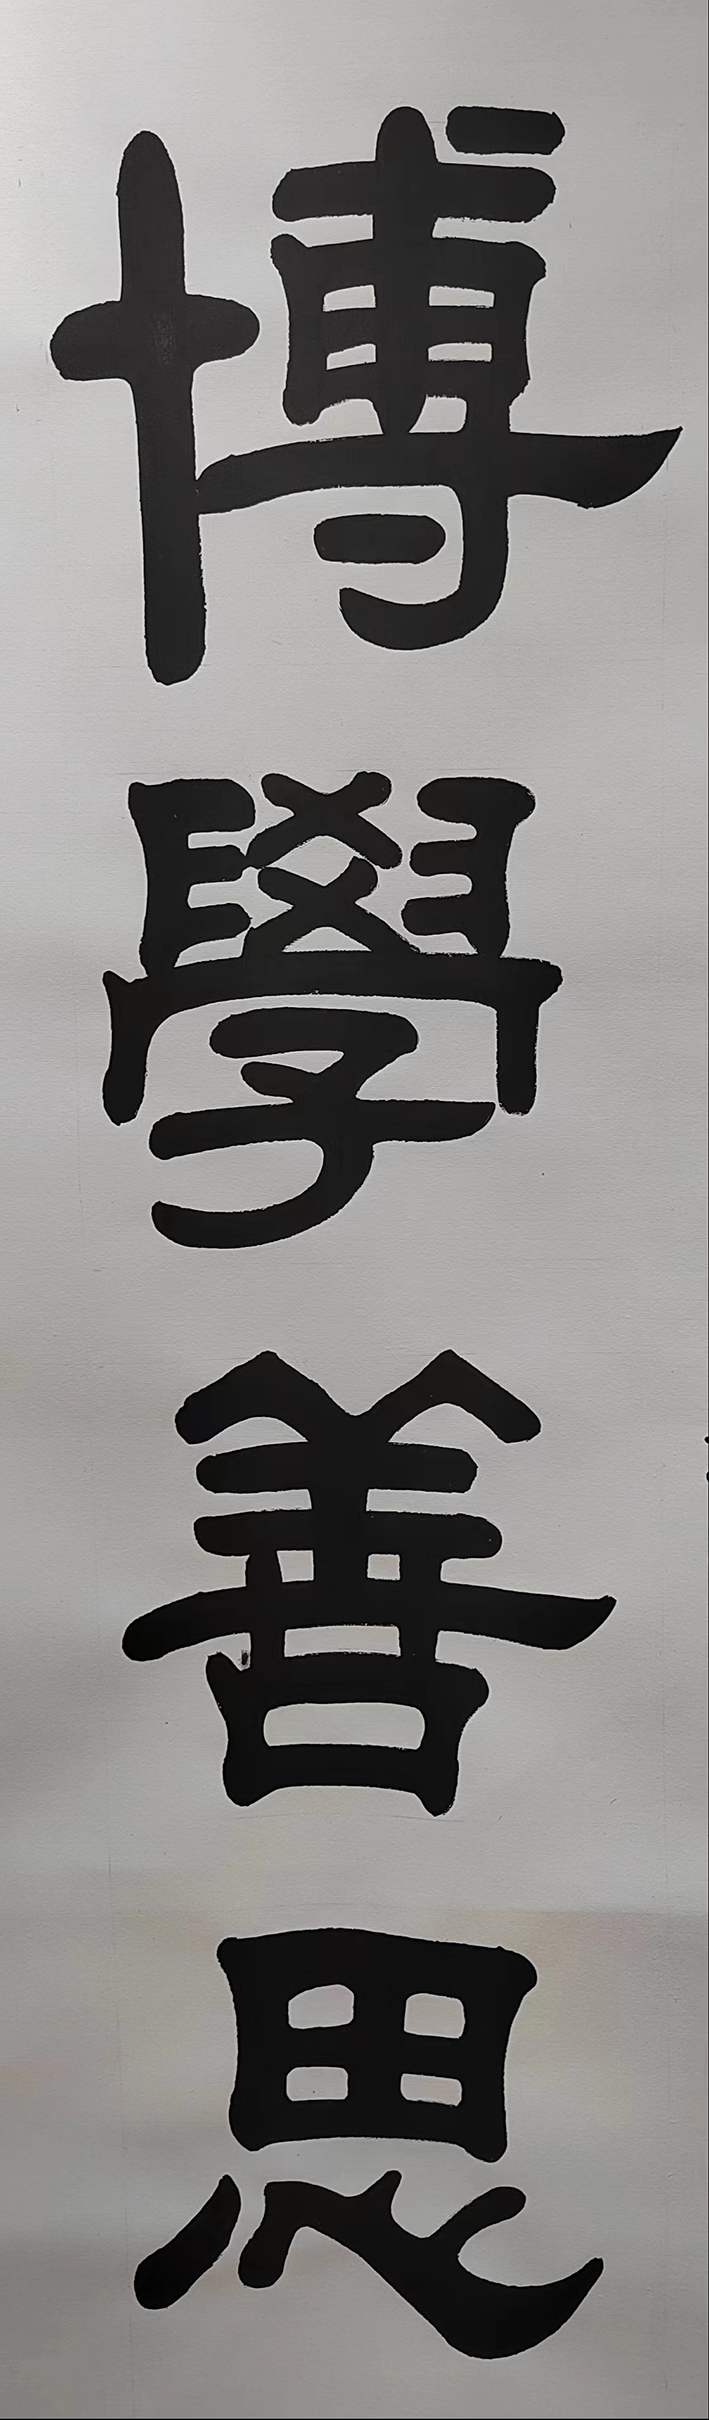 博學善思